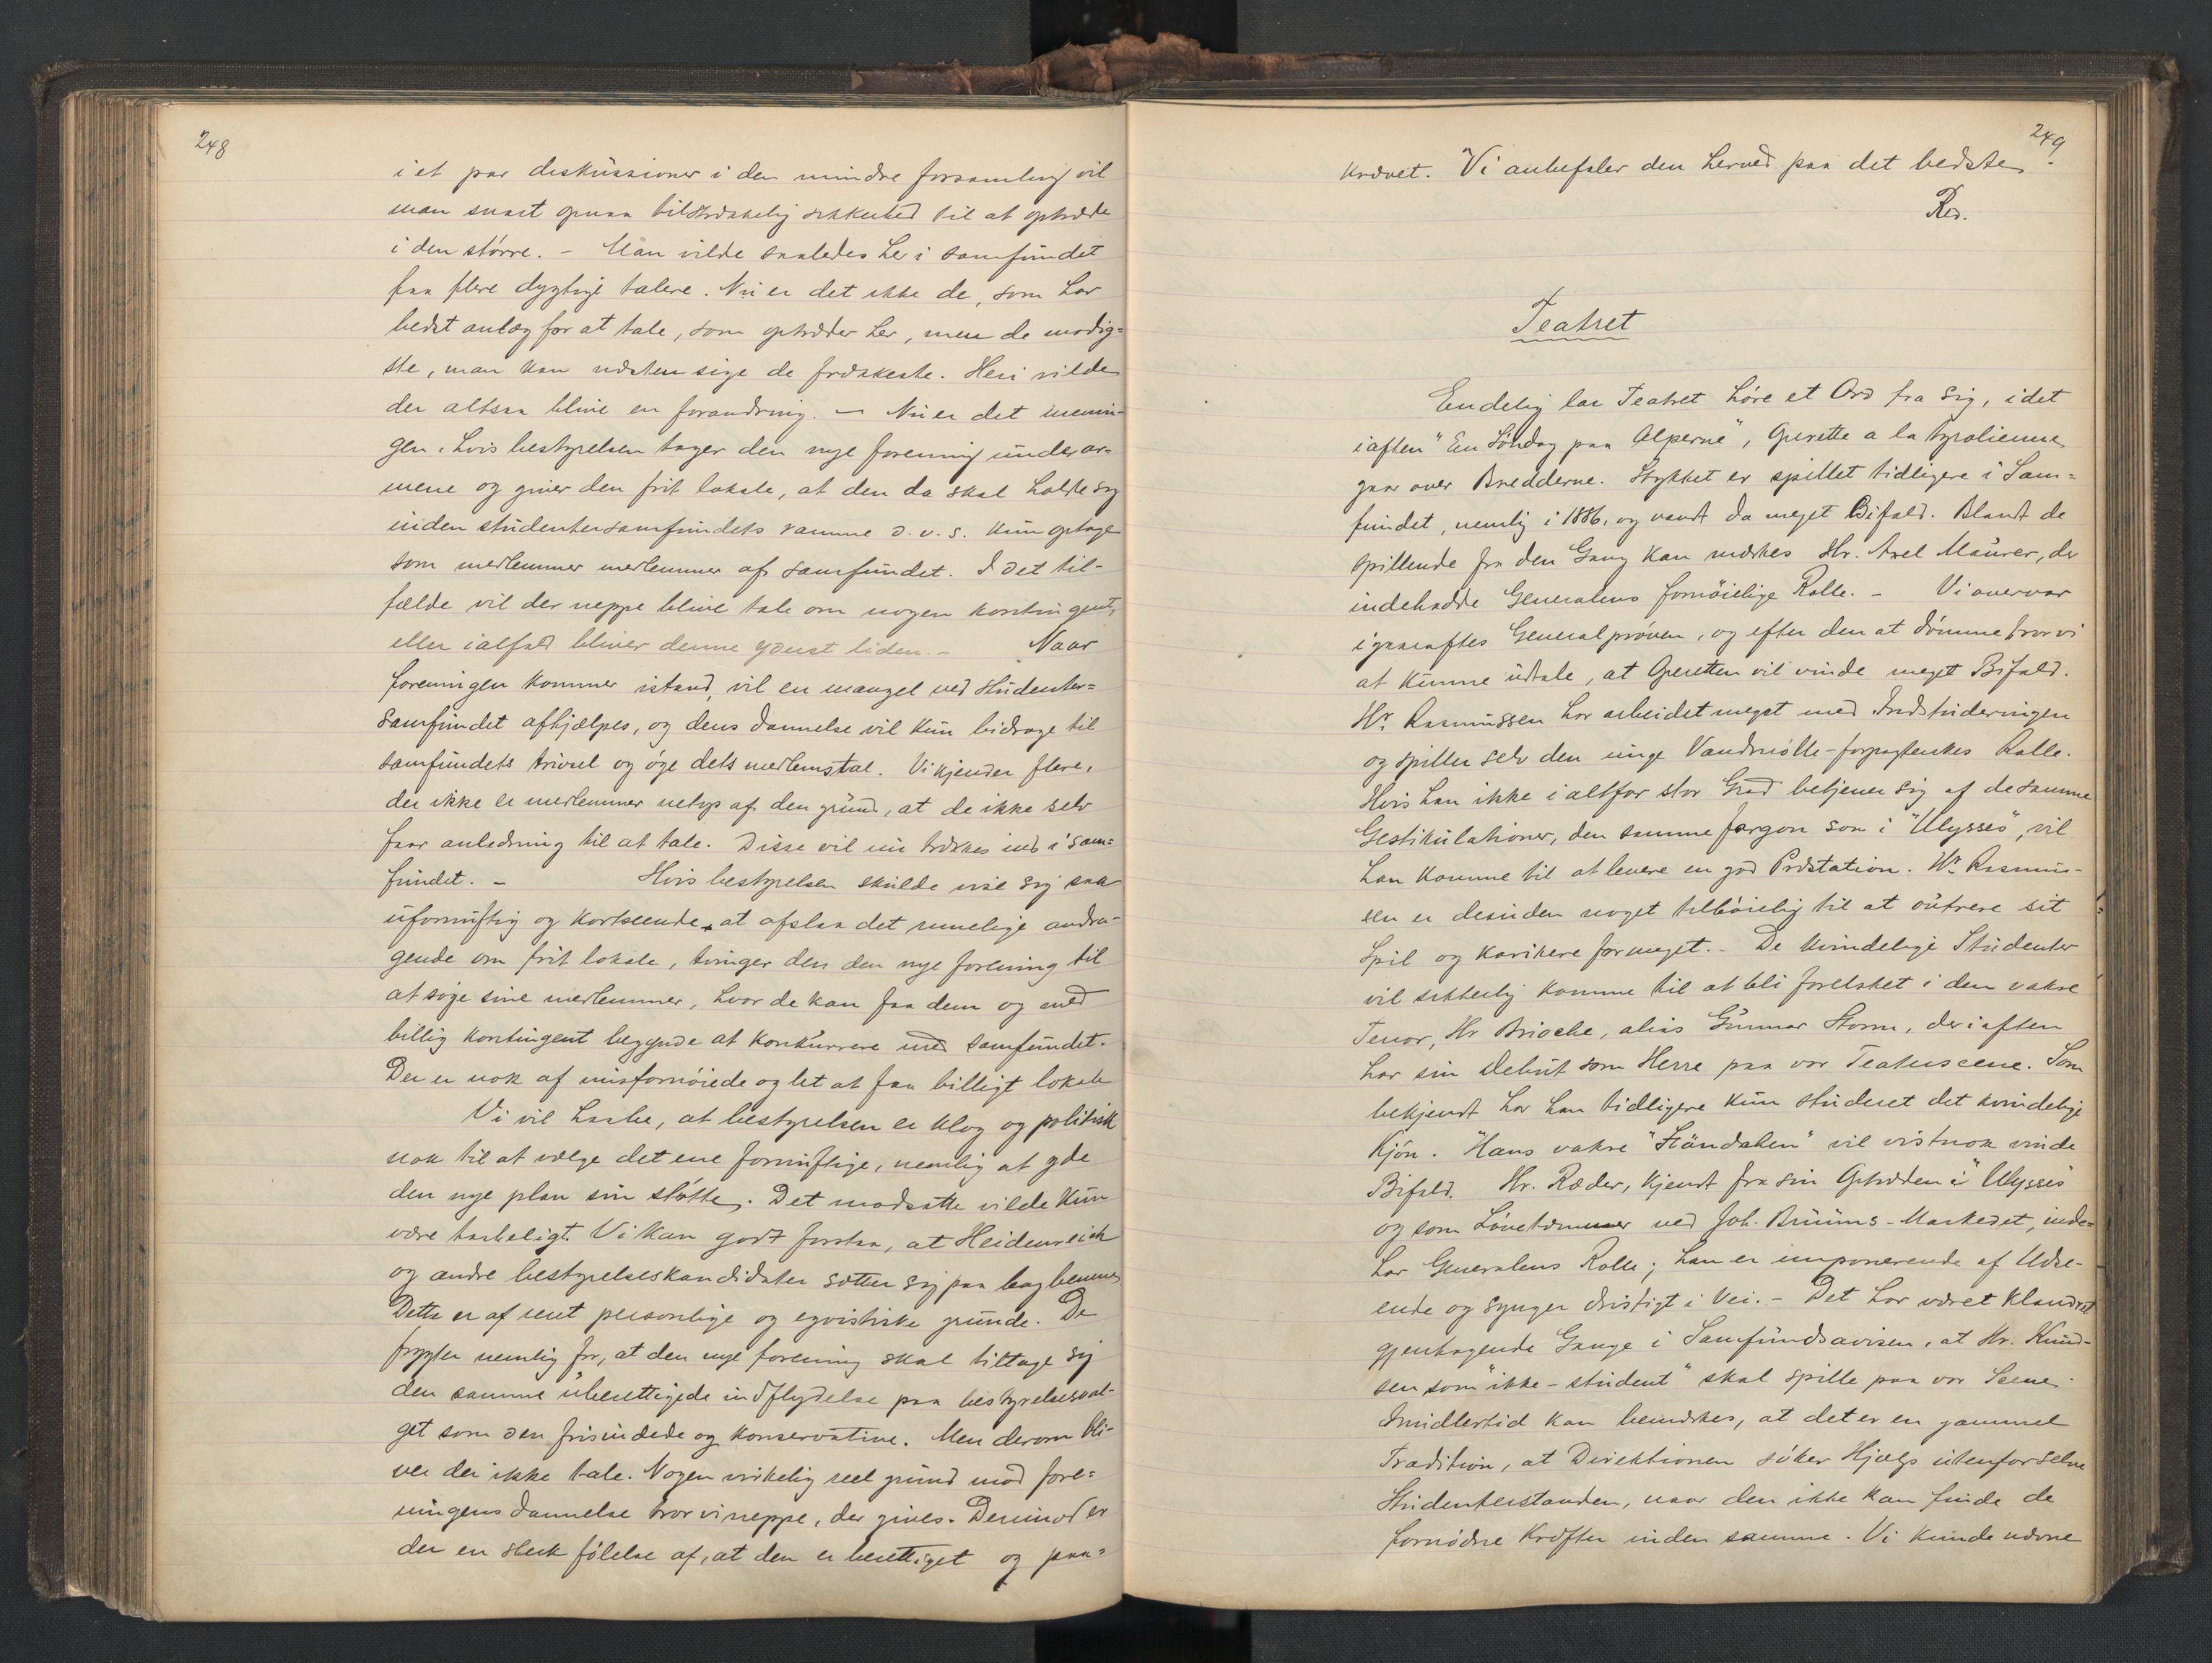 248
i et par diskussioner i den mindre forsamling vil
man snart opnaa tilstrækkelig sikkerhed til at optræde
i den större. – Man vilde saaledes her i samfundet
faa flere dygtige talere. Nu er det ikke de, som har
bedst anlæg for at tale, som optræder her, men de modig=
ste, man kan næsten sige de frækkeste. Heri vilde
der altsaa blive en forandring. – Nu er det menin-
gen, hvis bestyrelsen tager den nye forening under ar=
mene og giver den frit lokale, at den da skal holde sig
inden studentersamfundets ramme d. v. s. kun optage
som medlemmer medlemmer af samfundet. I det til-
fælde vil der neppe blive tale om nogen kontingent,
eller ialfald bliver denne yderst liden. – Naar
foreningen kommer istand, vil en mangel ved Studenter=
samfundet afhjælpes, og dens dannelse vil kun bidrage til
samfundets trivsel og öge dets medlemstal. Vi kjender flere,
der ikke er medlemmer netop af den grund, at de ikke selv
faar anledning til at tale. Disse vil nu trækkes ind i sam=
fundet. – Hvis bestyrelsen skulde vise sig saa
ufornuftig og kortseende, at afslaa det rimelige andra-
gende om frit lokale, tvinger den den nye forening til
at söge sine medlemmer, hvor de kan faa dem og med
billig kontingent begynde at konkurrere med samfundet.
Der er nok af misfornöiede og let at faa billigt lokale
Vi vil haabe, at bestyrelsen er klog og politisk
nok til at vælge det ene fornuftige, nemlig at yde
den nye plan sin stötte. Det modsatte vilde kun
være taabeligt. Vi kan godt forstaa, at Heidenreich
og andre bestyrelseskandidater sætter sig paa bagbenene
Dette er af rent personlige og egoistiske grunde. De
frygter nemlig for, at den nye forening skal tiltage sig
den samme uberettigede indflydelse paa bestyrelsesval-
get som den frisindede og konservative. Men derom bli-
ver der ikke tale. Nogen virkelig reel grund mod fore=
ningens dannelse tror vi neppe, der gives. Derimod er
der en sterk fölelse af, at den er berettiget og paa=
249
krævet. Vi anbefaler den herved paa det bedste.
Red.
Teatret
Endelig lar Teatret höre et Ord fra sig, idet
iaften "En Söndag paa Alperne", Operette a la tyrolienne
gaar over Brædderne. Stykket er spillet tidligere i Sam=
fundet, nemlig i 1886, og vandt da meget Bifald. Blandt de
spillende fra den Gang kan mærkes Hr. Axel Maurer, der
indehadde Generalens fornöielige Rolle. – Vi overvar
igaaraftes Generalpröven, og efter den at dömme tror vi
at kunne udtale, at Operetten vil vinde meget Bifald.
Hr. Rasmussen har arbeidet meget med Indstuderingen
og spiller selv den unge Vandmölle-forpagterskes Rolle.
Hvis han ikke i altfor stor Grad betjener sig af de samme
Gestikulationer, den samme Jargon som i "Ulysses", vil
han komme til at levere en god Præstation. Hr. Rasmus-
sen er desuden noget tilböielig til at outrere sit
Spil og karikere for meget. – De kvindelige Studenter
vil sikkerlig komme til at bli forelsket i den vakre
Tenor, Hr Brioche, alias Gunnar Storm, der iaften
har sin Debut som Herre paa vor Teaterscene. Som
bekjendt har han tidligere kun studeret det kvindelige
Kjön. Hans vakre "Ständchen" vil vistnok vinde
Bifald. Hr. Ræder, kjendt fra sin Optræden i "Ulysses"
og som Lövetæmmer ved Joh. Bruuns-Markedet, inde=
har Generalens Rolle; han er imponerende af Udse-
ende og synger dristigt i Vei. – Det har været klandret
gjentagende Gange i Samfundsavisen, at Hr. Knud-
sen som "ikke-student" skal spille paa vor Scene.
Imidlertid kan bemærkes, at det er en gammel
Tradition, at Direktionen söker Hjælp utenfor selve
Studenterstanden, naar den ikke kan finde de
fornödne Kræfter inden samme. Vi kunde nævne